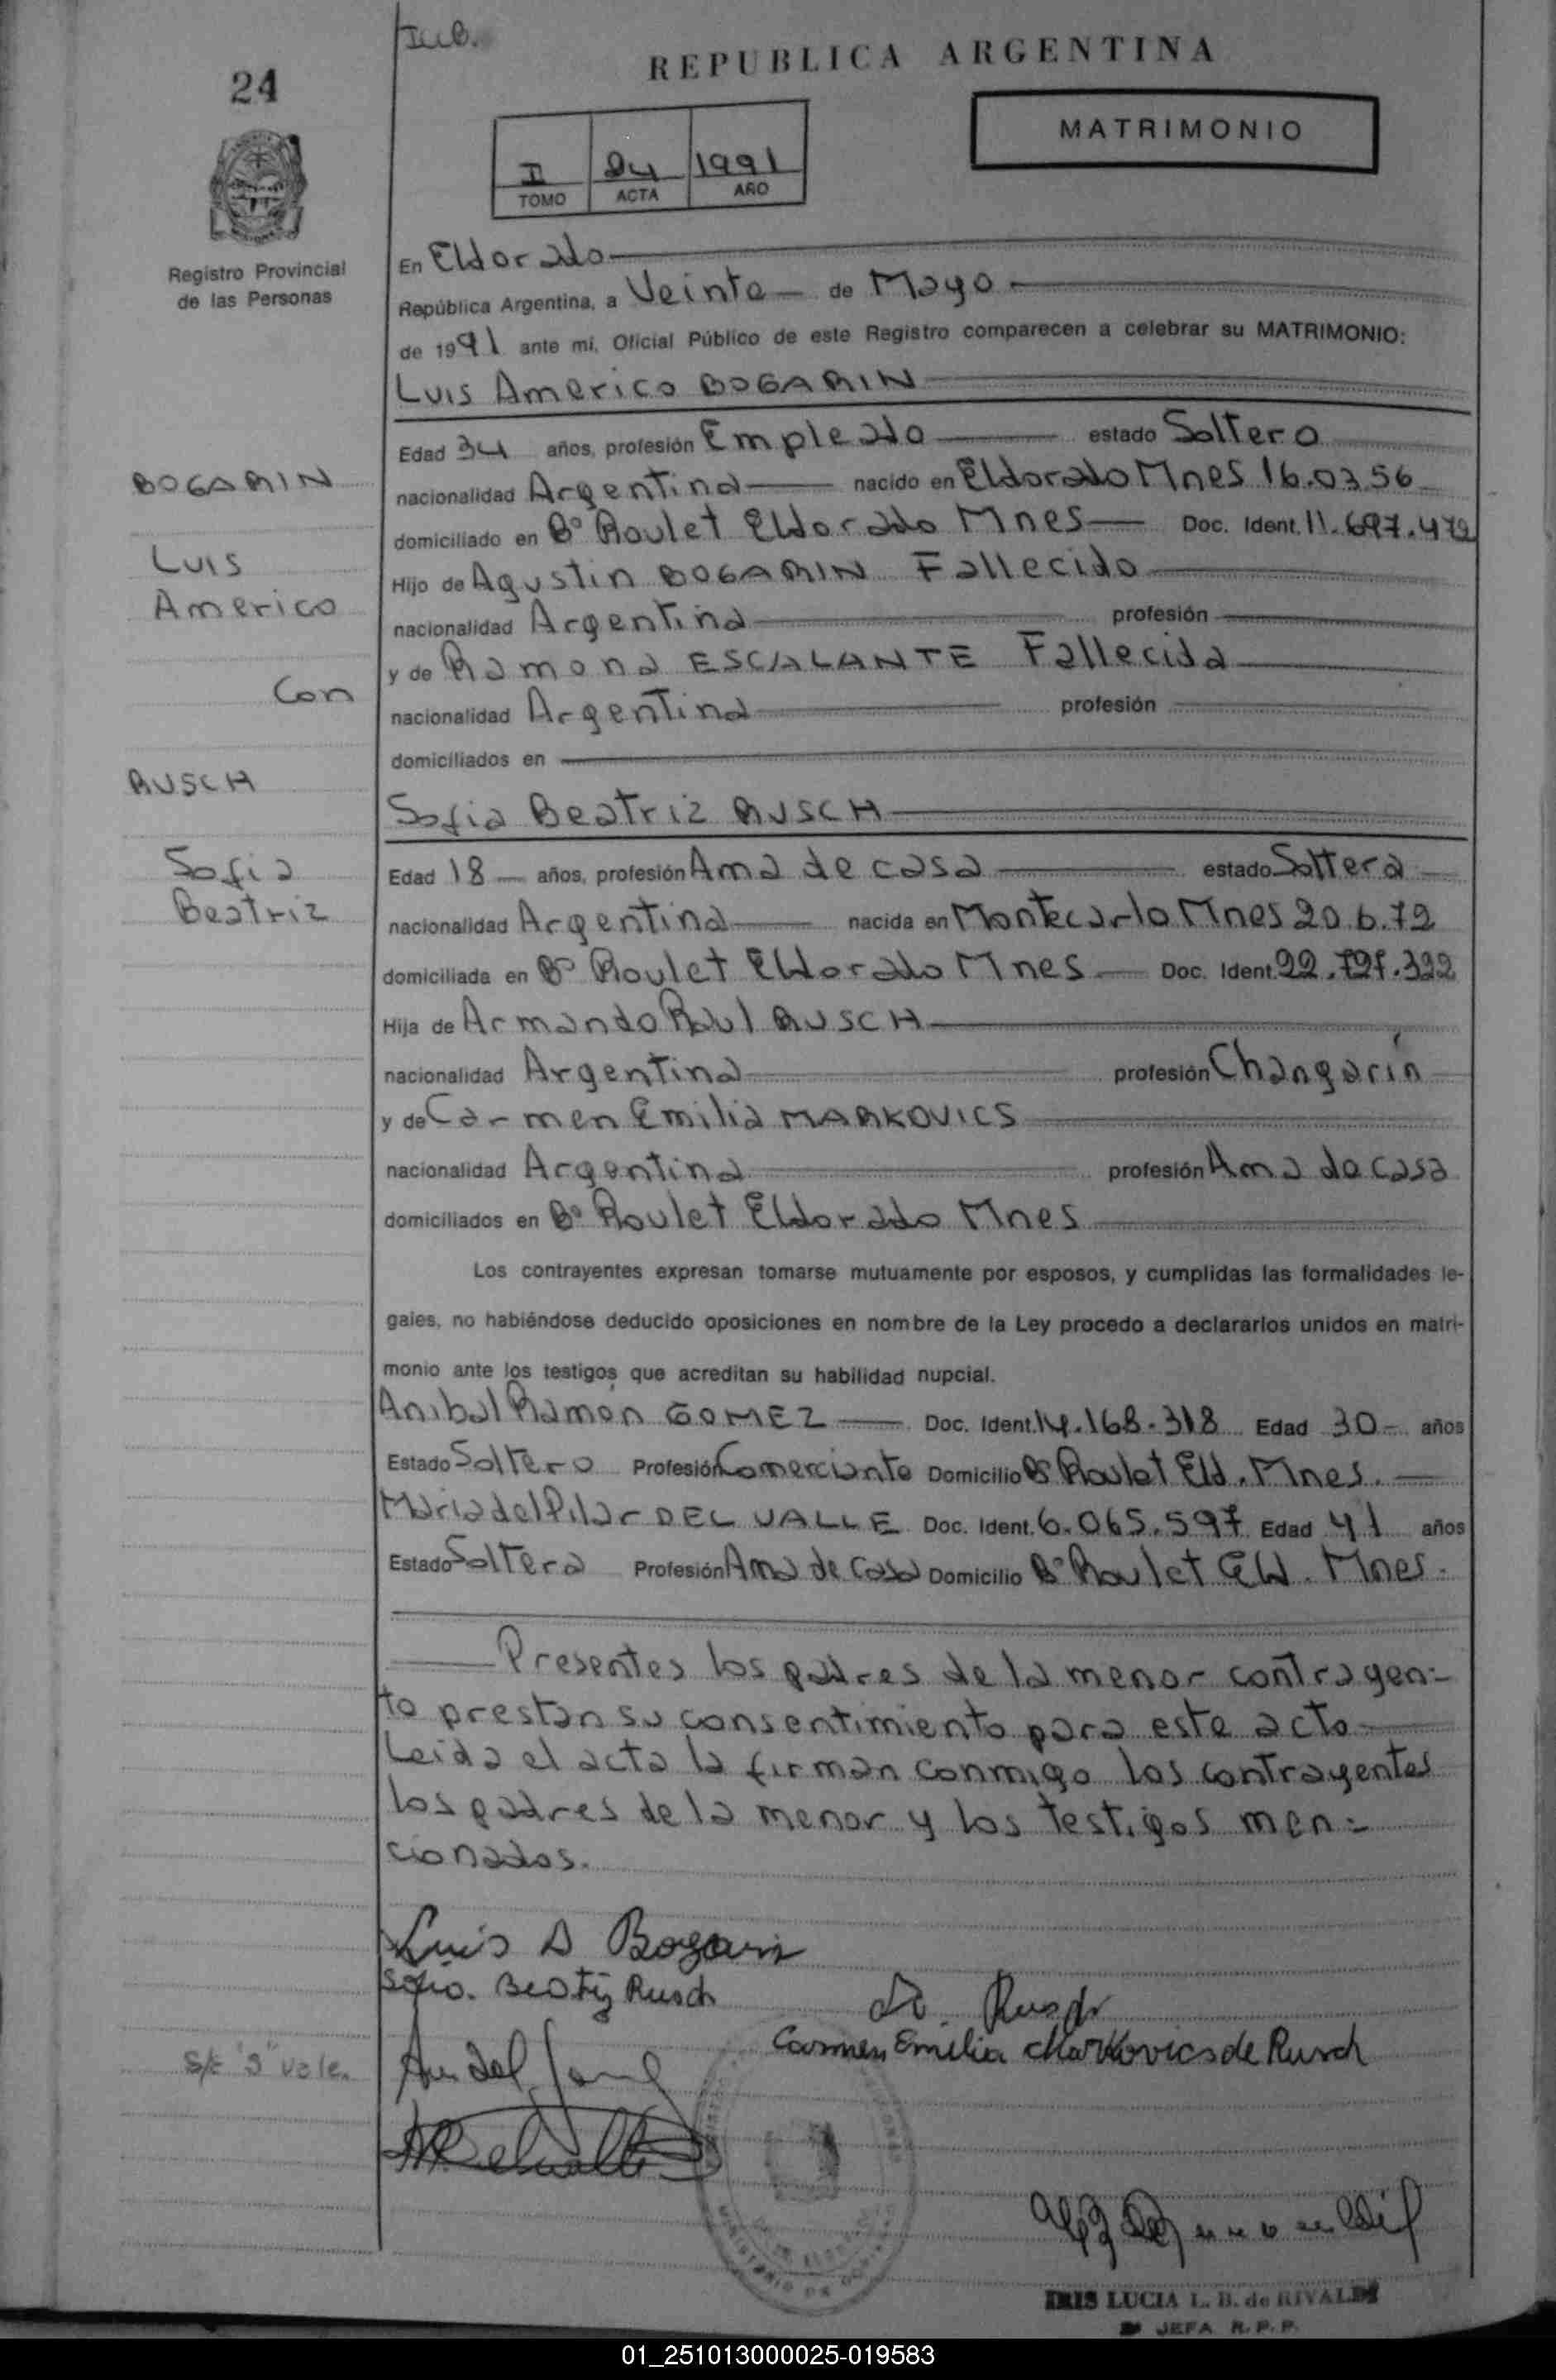 Jub.
REPUBLICA ARGENTINA
24
MATRIMONIO
II 24 1991
TOMO ACTA AÑO
Registro Provincial
de las Personas
En Eldorado
República Argentina, a Veinte de Mayo
de 1991 ante mí, Oficial Público de este Registro comparecen a celebrar su MATRIMONIO:
Luis Americo BOGARIN
Edad 34 años, profesión Empleado estado Soltero
BOGARIN
nacionalidad Argentina nacido en Eldorado Mnes 16.03.56
domiciliado en Bº Roulet Eldorado Mnes Doc. Ident. 11.697.472
Luis
Hijo de Agustin BOGARIN Fallecido
Americo
nacionalidad Argentina profesión
y de Ramona ESCALANTE Fallecida
Con
nacionalidad Argentina profesión
domiciliados en
RUSCH
Sofia Beatriz RUSCH
Sofia
Edad 18 años, profesión Ama de casa estado Soltera
Beatriz
nacionalidad Argentina nacida en Montecarlo Mnes 20.6.72
domiciliada en Bº Roulet Eldorado Mnes Doc. Ident. 22.791.322
Hija de Armando Raul RUSCH
nacionalidad Argentina profesión Changarín
y de Carmen Emilia MARKOVICS
nacionalidad Argentina profesión Ama de casa
domiciliados en Bº Roulet Eldorado Mnes
Los contrayentes expresan tomarse mutuamente por esposos, y cumplidas las formalidades le-
gales, no habiéndose deducido oposiciones en nombre de la Ley procedo a declararlos unidos en matri-
monio ante los testigos que acreditan su habilidad nupcial.
Anibal Ramón GOMEZ Doc. Ident. 14.168.318 Edad 30 años
Estado Soltero Profesión Comerciante Domicilio Bº Roulet Eld. Mnes.
Maria del Pilar DEL VALLE Doc. Ident. 6.065.597 Edad 41 años
Estado Soltera Profesión Ama de Casa Domicilio Bº Roulet Eld. Mnes.
Presentes los padres de la menor contrayen=
te prestan su consentimiento para este acto
Leida el acta la firman conmigo los contrayentes
los padres de la menor y los testigos men=
cionados.
Luis A Bogarin
Sofia. Beatriz Rusch
Rusch
Carmen Emilia Markovics de Rusch
S/E "3" vale.
IRIS LUCIA L. B. de RIVALDI
JEFA R. P. P.
01_251013000025-019583